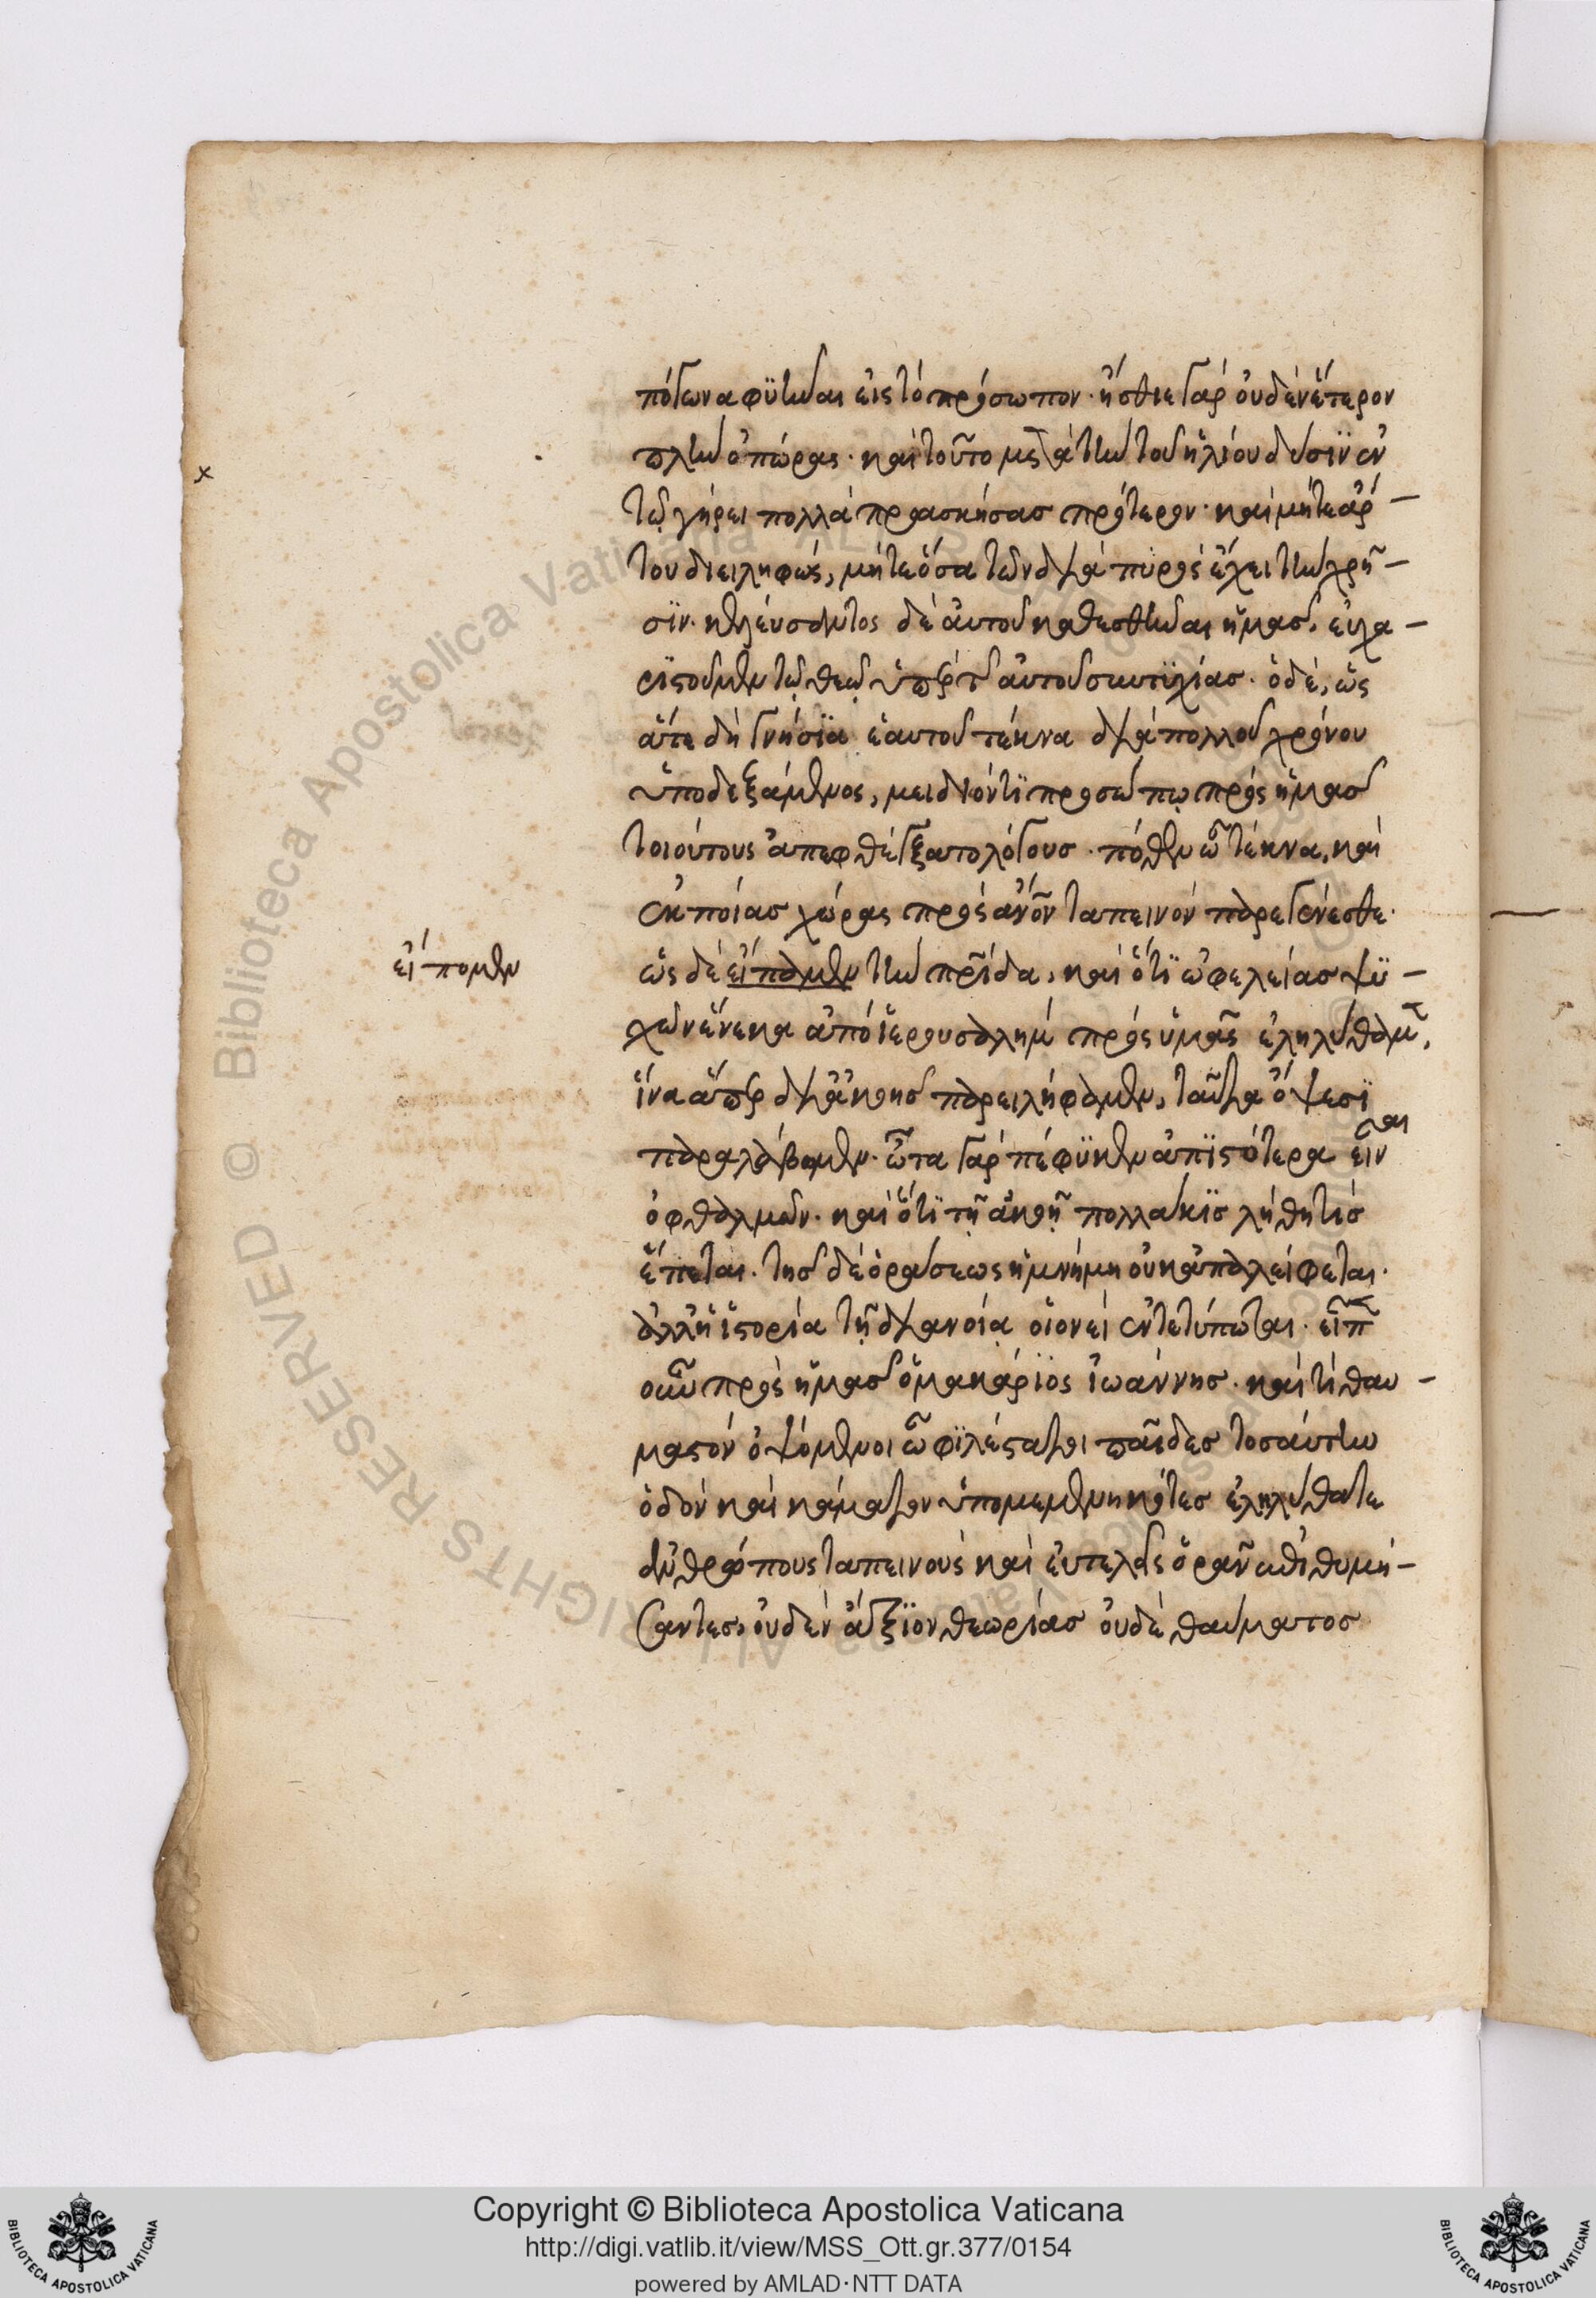 πώγωνα φύεσθαι εἰς τὸ πρόσωπον· ἤσθιε γὰρ οὐδὲν ἕτερον
πλὴν ὀπώρας· καὶ τοῦτο μετὰ τὴν τοῦ ἡλίου δύσϊν ἐν
τῷ γήρει πολλὰ προασκήσας πρότερον· καὶ μήτε ἄρ-
του διειληφώς, μήτε ὅσα τῶν διὰ πυρὸς ἔχει τὴν χρῆ-
σϊν. κελεύσαντος δὲ αὐτοῦ καθεσθῆναι ἡμᾶς, εὐχα-
ριστοῦμεν τῷ θεῷ ὑπὲρ τῆς αὐτοῦ συντυχίας. ὁ δὲ, ὡς
ἅτε δὴ γνήσϊα ἑαυτοῦ τέκνα διὰ πολλοῦ χρόνου
ὑποδεξάμενος, μειδιόντϊ προσώπῳ πρὸς ἡμᾶς
τοιούτους ἀπεφθέγξατο λόγους· πόθεν ὦ τέκνα, καὶ
ἐκ ποίας χώρας πρὸς ἄνον ταπεινὸν παρεγένεσθε·
ὡς δὲ εἴπαμεν τὴν πρίδα, καὶ ὅτϊ ὠφελείας ψϋ-
εἴπομεν
χῶν ἕνεκα ἀπὸ ἱερουσαλὴμ πρὸς ὑμᾶς ἐληλύθαμεν,
ἵνα ἅπερ διὰ ἀκοῆς παρειλήφαμεν, ταῦτα ὄψεσϊ
παραλάβωμεν· ὦτα γὰρ πέφϋκεν ἀπϊστότερα εἶναι
ὀφθαλμῶν· καὶ ὅτϊ τῇ ἀκοῇ πολλάκϊς λήθη τὶς
ἕπεται· τῆς δὲ ὁράσεως ἡ μνήμη οὐκ ἀπαλείφεται·
ἀλλ' ἡ ἱστορία τῇ διανοίᾳ οἱονεὶ ἐντετύπωται· εἶπ
οὖν πρὸς ἡμᾶς ὁ μακάρϊος ἰωάννης· καὶ τί θαυ-
μαστὸν ὀψόμενοι ὦ φϊλέστατοι παῖδες τοσαύτην
ὁδὸν καὶ κάματον ὑπομεμενηκότες ἐληλύθατε
ἀνθρώπους ταπεινοὺς καὶ εὐτελεῖς ὁρᾶν ἐπιθυμή-
σαντες, οὐδὲν ἄξϊον θεωρίας οὐδὲ θαύματος
Copyright © Biblioteca Apostolica Vaticana
http://digi.vatlib.it/view/MSS_Ott.gr.377/0154
powered by AMLAD·NTT DATA
BIBLIOTECA APOSTOLICA VATICANA
BIBLIOTECA APOSTOLICA VATICANA